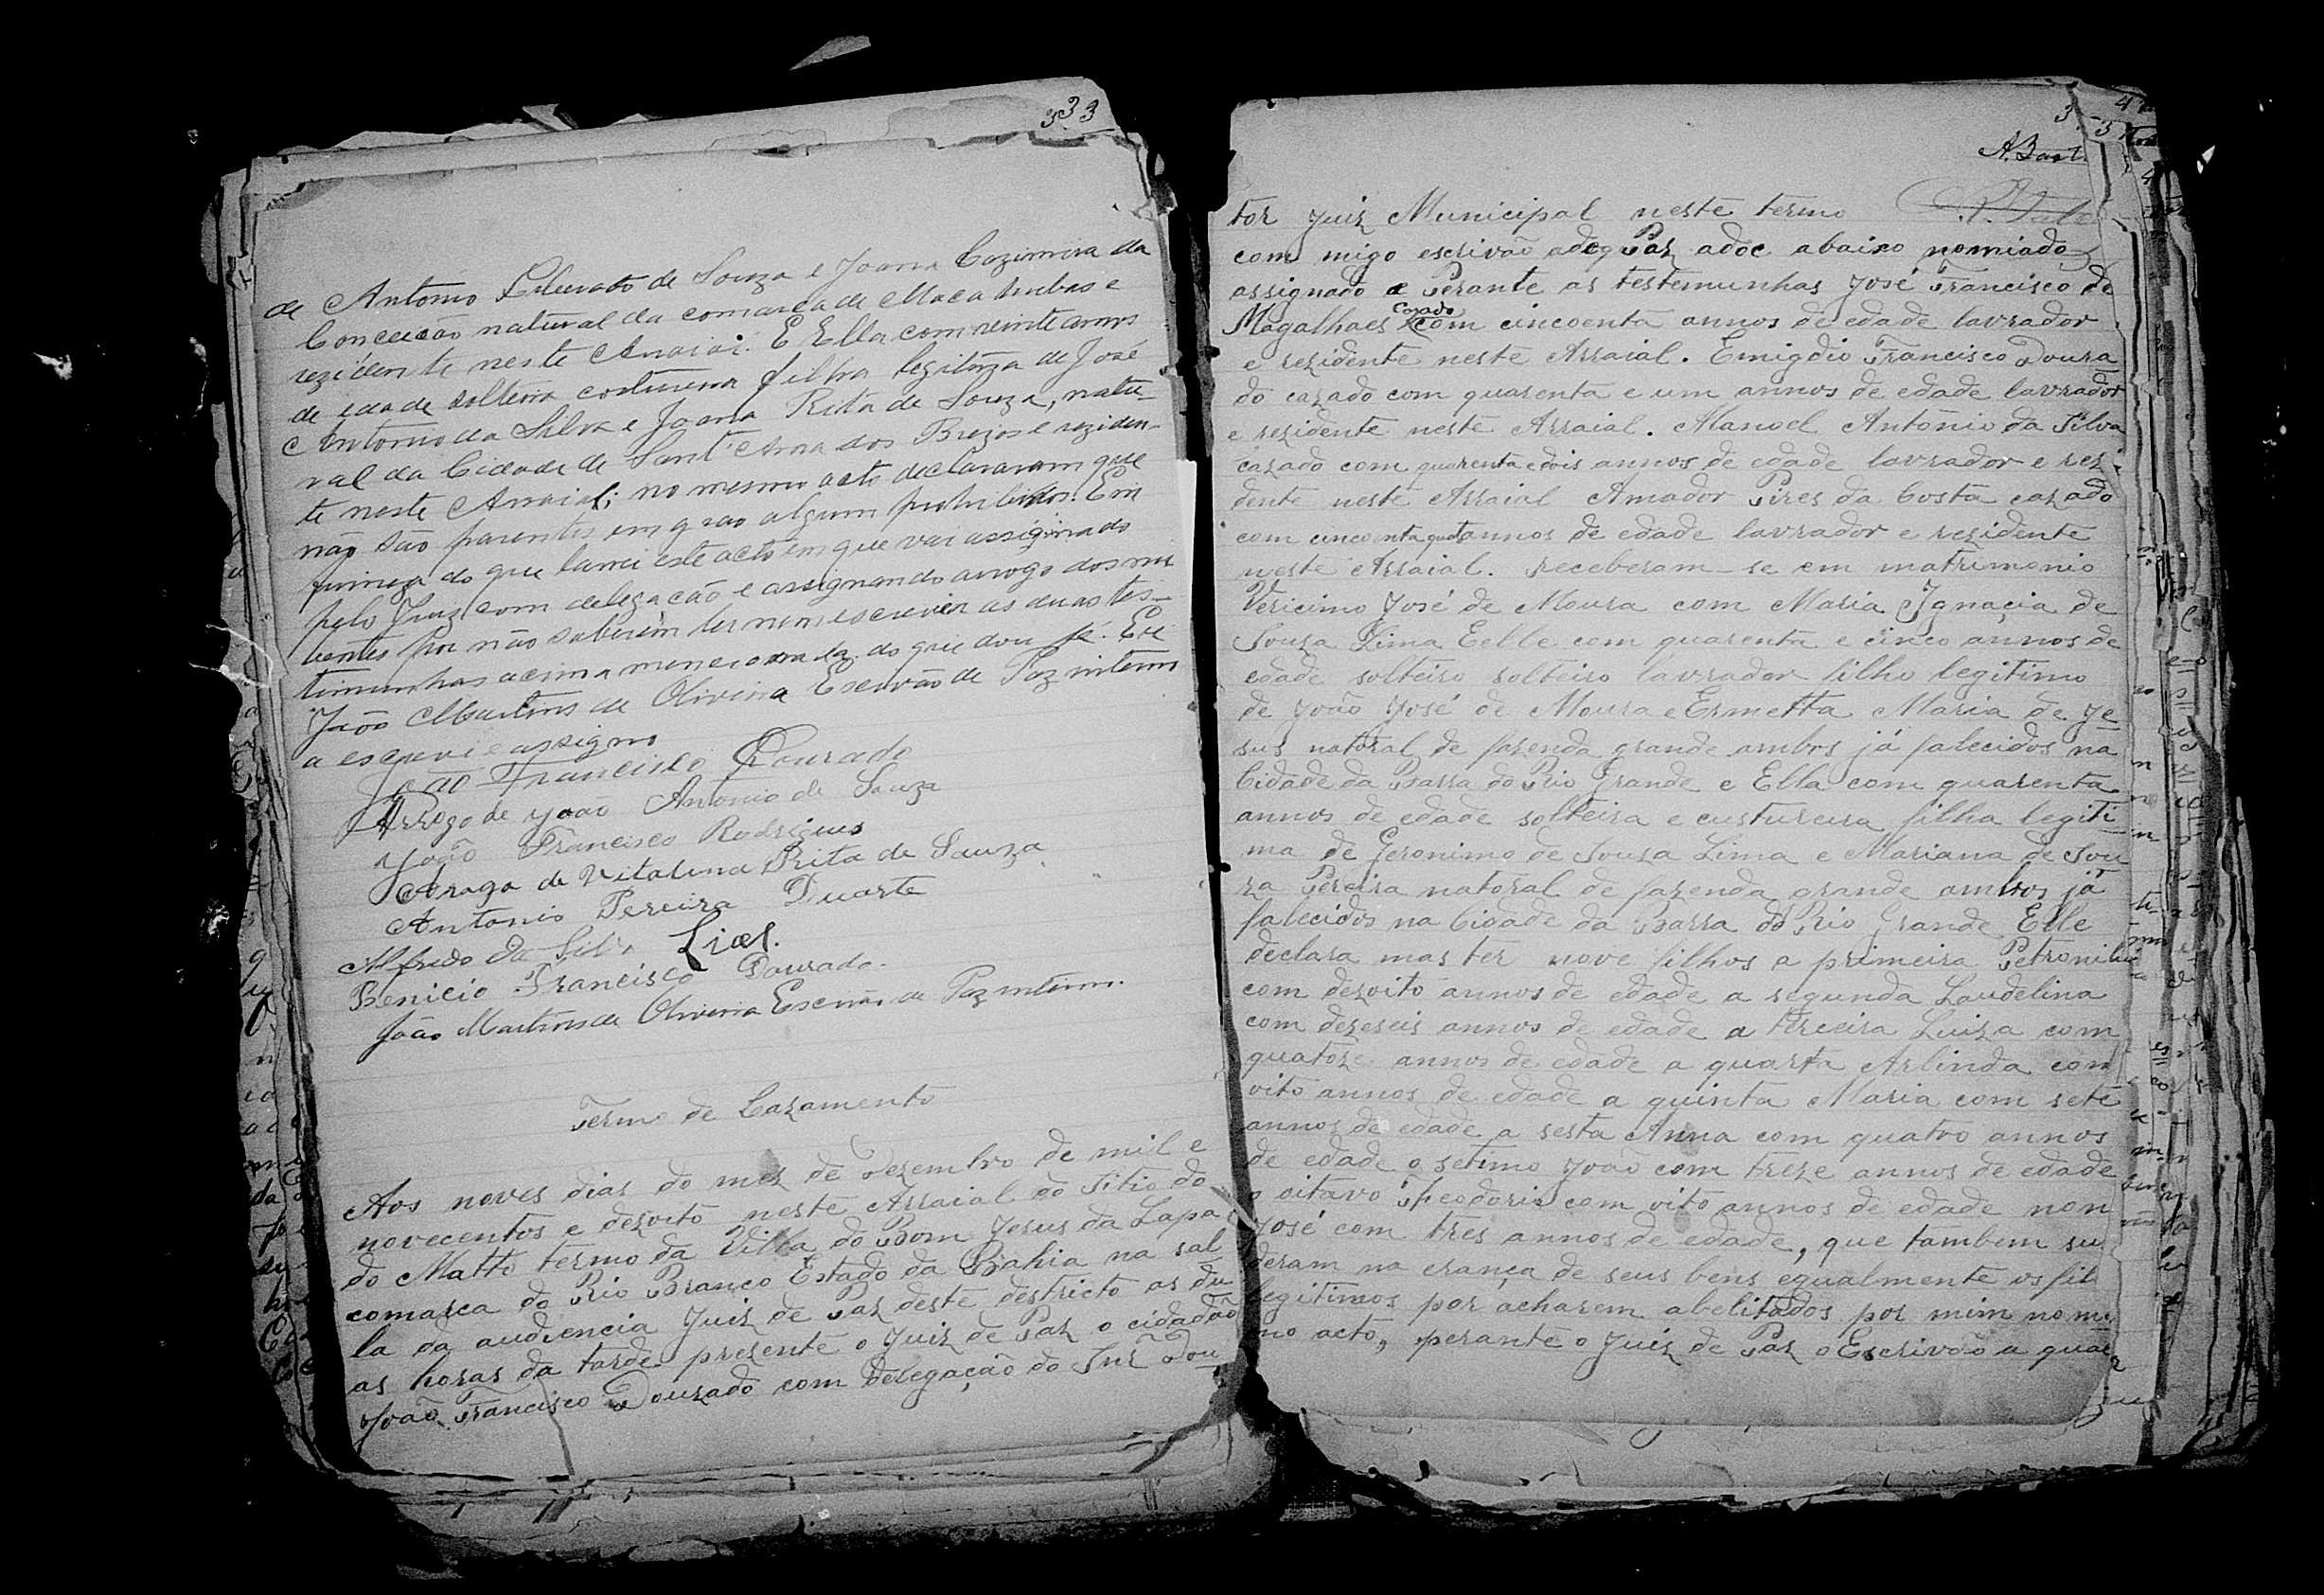 333
de Antonio Liberato de Souza e Joana Cazimira da
Conceicão natural da comarca de Macahubas e
rezidente neste Arraial. E Ella com vinte annos
de edade solteira costureira filha legitima de José
Antonio da Silva e Joana Rita de Souza, natu-
ral da Cidade de Sant'Anna dos Brejos e reziden-
te neste Arraial; no mesmo acto declararam que
não são parentes em grao algum prohibidos. Em
firmeza do que lavrei este acto em que vai assignado
pelo Juiz com delegação e assignando arrogo dos nu
bentes por não saberem ler nem escrever as duas tes-
timunhas acima mencionada do que dou fé. Eu
João Martins de Oliveira Escrivão de Paz interino
a escrevi e assigno
João Francisco Dourado
Arrogo de João Antonio de Souza
João Francisco Rodrigues
Arrogo de Vitalina Rita de Souza
Antonio Pereira Duarte
Alfredo da Silva Lial.
Benicio Francisco Dourado.
João Martins de Oliveira Escrivão de Paz interino.
Termo de Cazamento
Aos noves dias do mez de Dezembro de mil e
novecentos e dezoito neste Arraial do Sitio do
do Matto termo da Villa do Bom Jesus da Lapa
comarca do Rio Branco Estado da Bahia na sal
la da audiencia Juiz de Paz deste destricto as du
as horas da tarde prezente o Juiz de Paz o cidadão
João Francisco Dourado com delegação do Snr Dou
A. Bast.
tor Juiz Municipal neste termo
com migo escrivão adoq Paz adoc abaixo nomiado
assignado e Perante as testemunhas José Francisco de
Cazado
Magalhaes com cincoenta annos de edade lavrador
e rezidente neste Arraial. Emigdio Francisco Doura
do cazado com quarenta e um annos de edade lavrador
e rezidente neste Arraial. Manoel Antonio da Silva
cazado com quarenta e dois annos de edade lavrador e rezi
dente neste Arraial Amador Pires da Costa cazado
com cincoenta annos de edade lavrador e rezidente
neste Arraial. receberam-se em matrimonio
Vericimo José de Moura com Maria Ignacia de
Souza Lima Eelle com quarenta e cinco annos de
edade solteiro solteiro lavrador filho legitimo
de João José de Moura e Ermetta Maria de Je
sus natoral de fazenda grande ambos já falecidos na
Cidade da Barra do Rio Grande e Ella com quarenta
annos de edade solteira e custureira filha legiti
ma de Geronimo de Souza Lima e Mariana de Sou
za Pereira natoral de fazenda grande ambos já
falecidos na Cidade da Barra do Rio Grande Elle
declara mas ter nove filhos a primeira Petronilia
com dezoito annos de edade a segunda Laudelina
com dezeseis annos de edade a terceira Luiza com
quatoze annos de edade a quarta Arlinda com
oito annos de edade a quinta Maria com sete
annos de edade a sesta Anna com quatro annos
de edade o setimo João com treze annos de edade
o oitavo Theodorio com oito annos de edade non
José com tres annos de edade, que tambem su
deram na erança de seus bens egualmente os fil
legitimos por acharem abelitados por mim no m
mo acto, perante o Juiz de Paz o Escrivão a quae